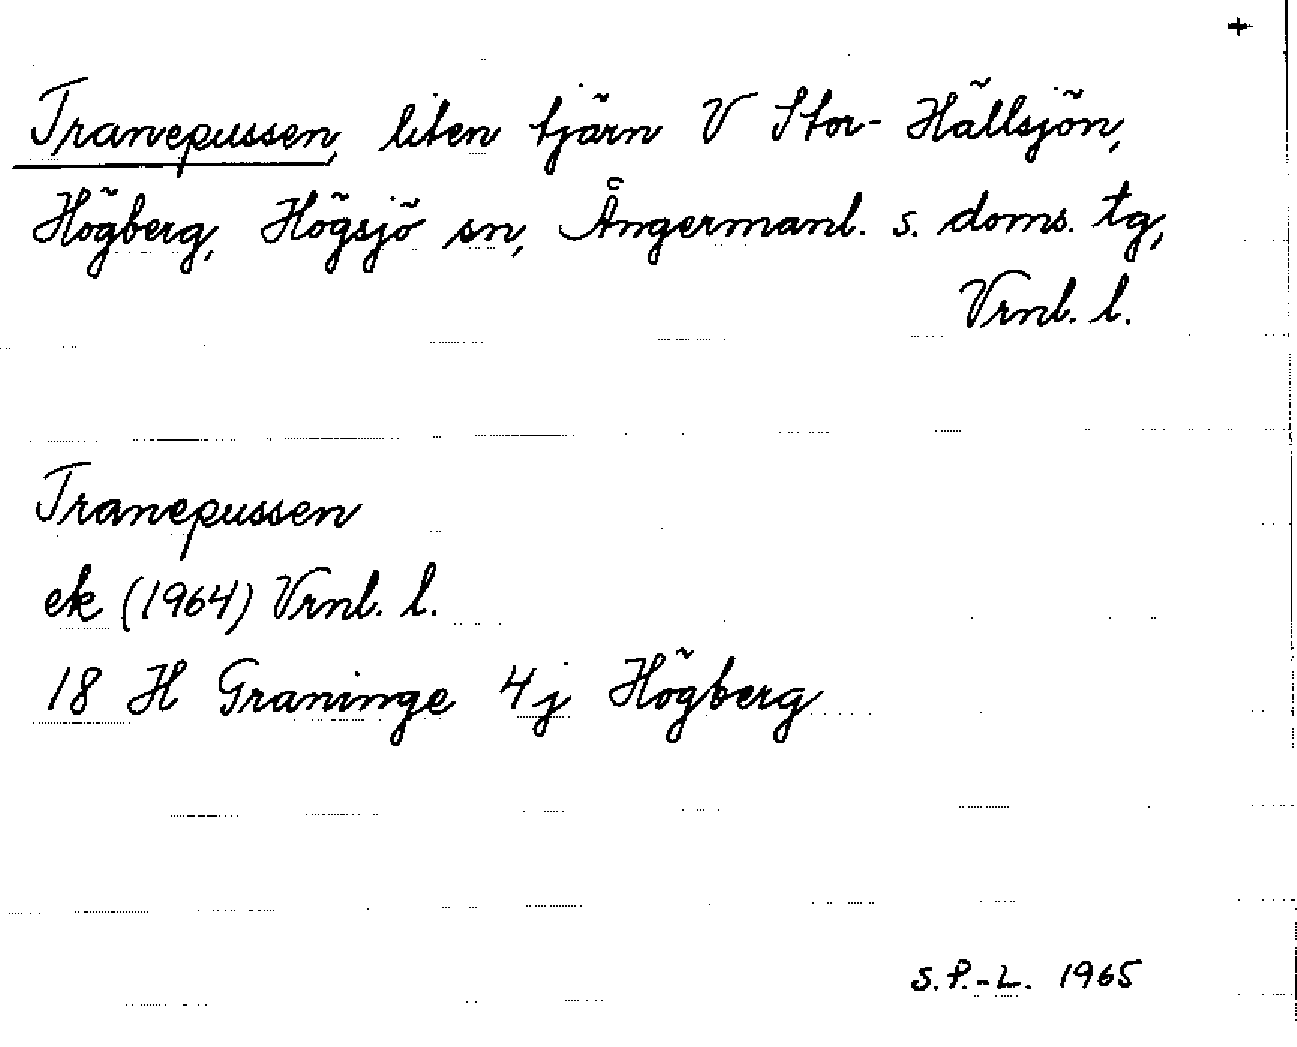 +
Tranepussen, liten tjärn V Stor-Hällsjön,
Högberg, Högsjö sn, Ångermanl. s. doms. tg,
Vrnl. l.
Tranepussen
ek (1964) Vrnl. l.
18 H Graninge 4j Högberg
S.P.-L. 1965